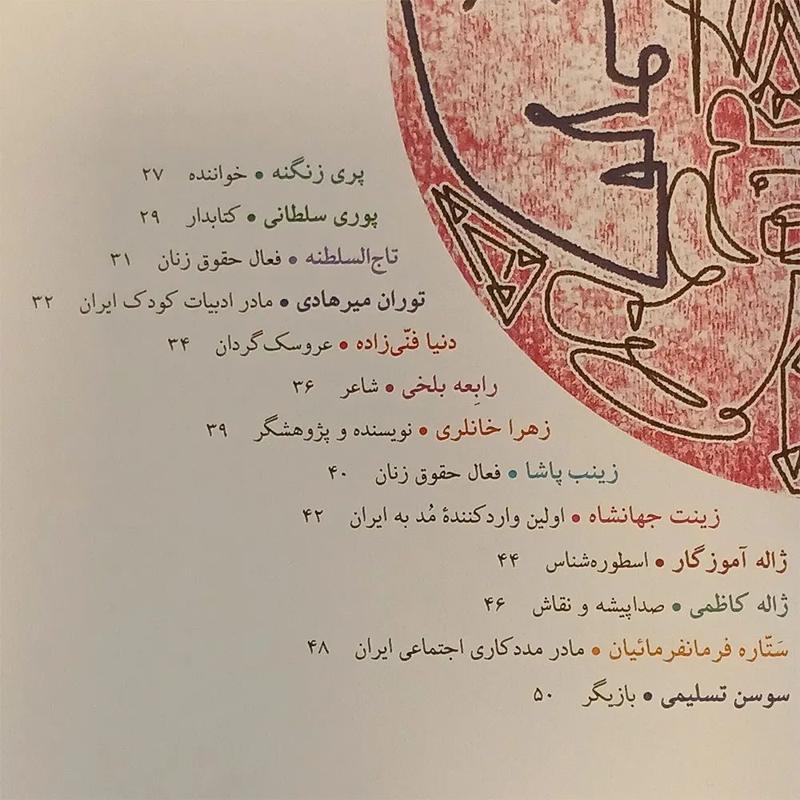 پری زنگنه • خواننده ۲۷
پوری سلطانی • کتابدار ۲۹
تاج‌السلطنه • فعال حقوق زنان ۳۱
توران میرهادی • مادر ادبیات کودک ایران ۳۲
دنیا فنّی‌زاده • عروسک‌گردان ۳۴
رابِعه بلخی • شاعر ۳۶
زهرا خانلری • نویسنده و پژوهشگر ۳۹
زینب پاشا • فعال حقوق زنان ۴۰
زینت جهانشاه • اولین واردکنندهٔ مُد به ایران ۴۲
ژاله آموزگار • اسطوره‌شناس ۴۴
ژاله کاظمی • صداپیشه و نقاش ۴۶
سَتّاره فرمانفرمائیان • مادر مددکاری اجتماعی ایران ۴۸
سوسن تسلیمی • بازیگر ۵۰